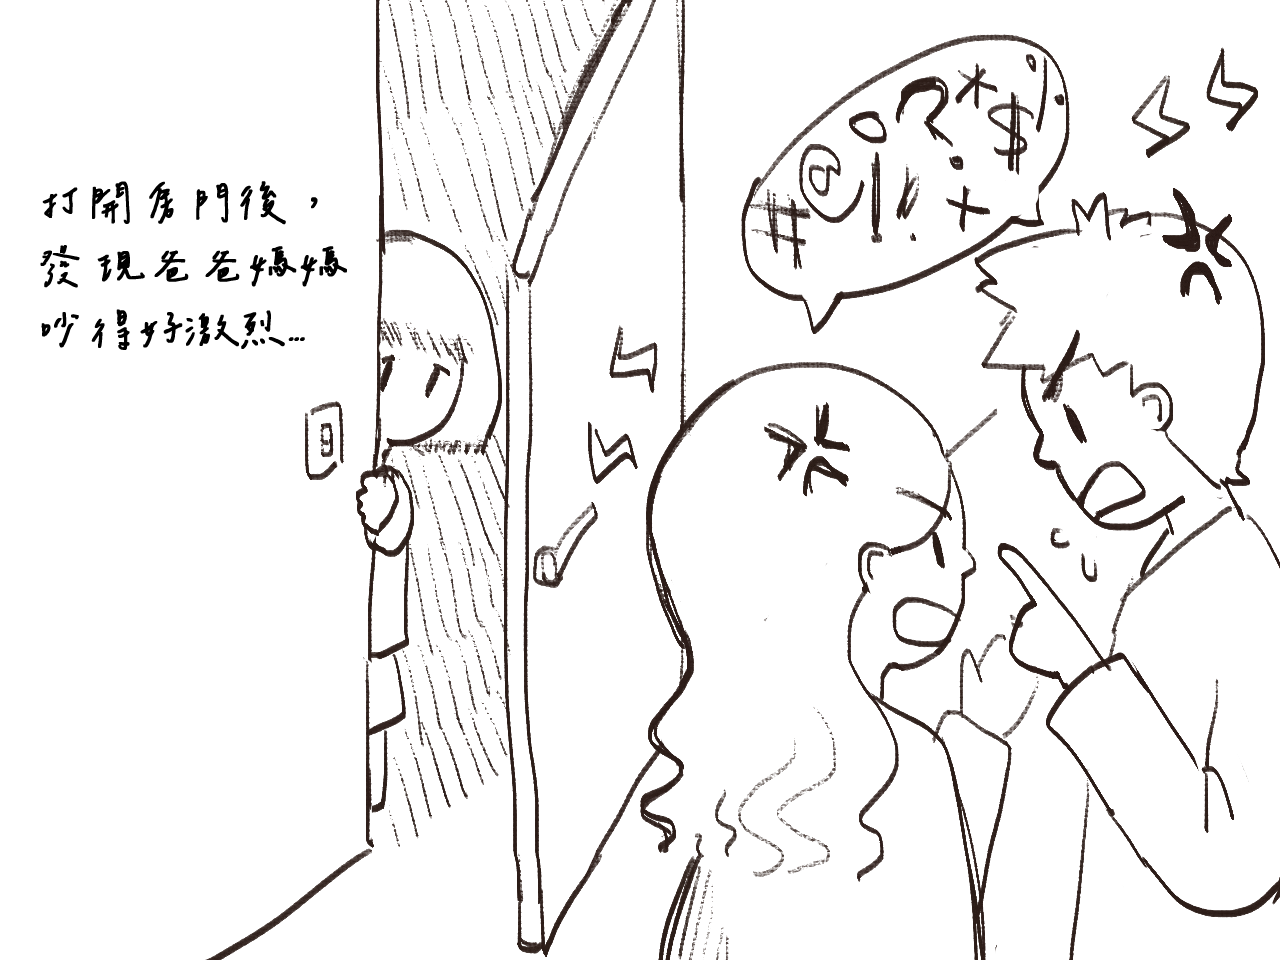 打開房門後，
發現爸爸媽媽
吵得好激烈...
@#!?*$!+